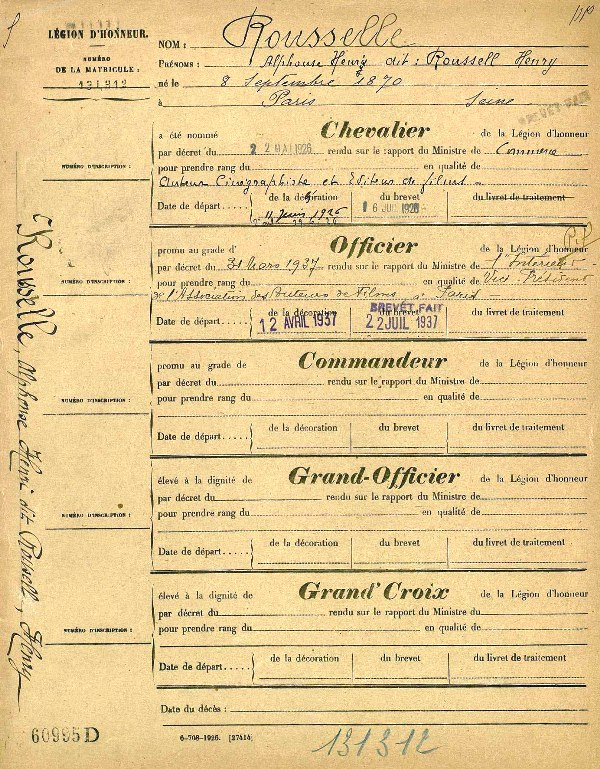 LÉGION D'HONNEUR.
NUMÉRO
DE LA MATRICULE :
131312
NOM : Rousselle
PRÉNOMS : Alphonse Henry dit : Roussell Henry
né le 8 Septembre 1870
à Paris Seine
BREVET FAIT
a été nommé Chevalier de la Légion d'honneur
par décret du 22 MAI 1926 rendu sur le rapport du Ministre de Commerce
NUMÉRO D'INSCRIPTION : pour prendre rang du en qualité de
Auteur Cinégraphiste et Editeur de films
Date de départ de la décoration du brevet du livret de traitement
11 Juin 1926 16 JUIN 1926
promu au grade d' Officier de la Légion d'honneur
par décret du 31 Mars 1937 rendu sur le rapport du Ministre de l'Intérieur
NUMÉRO D'INSCRIPTION : pour prendre rang du en qualité de Vice Président
de l'Association des Auteurs de Films à Paris
Date de départ de la décoration du brevet du livret de traitement
12 AVRIL 1937 BREVET FAIT 22 JUIL 1937
promu au grade de Commandeur de la Légion d'honneur
par décret du rendu sur le rapport du Ministre de
NUMÉRO D'INSCRIPTION : pour prendre rang du en qualité de
Date de départ de la décoration du brevet du livret de traitement
élevé à la dignité de Grand-Officier de la Légion d'honneur
par décret du rendu sur le rapport du Ministre de
NUMÉRO D'INSCRIPTION : pour prendre rang du en qualité de
Date de départ de la décoration du brevet du livret de traitement
élevé à la dignité de Grand'Croix de la Légion d'honneur
par décret du rendu sur le rapport du Ministre du
NUMÉRO D'INSCRIPTION : pour prendre rang du en qualité de
Date de départ de la décoration du brevet du livret de traitement
Date du décès :
60995D
6-708-1926. [27414]
131312
Rousselle, Alphonse Henri dit Roussell, Henry